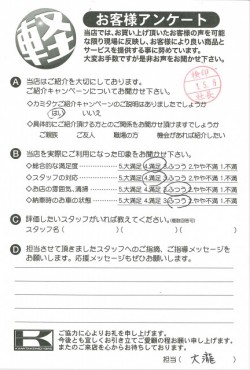 軽
お客様アンケート
当店では、お買い上げ頂いたお客様の声を可能
な限り現場に反映し、お客様により良い商品と
サービスを提供する事に努めています。
大変お手数ですが是非お声をお聞かせ下さい。
A 当店はご紹介を大切にしております。
ご紹介キャンペーンについてお聞かせ下さい。
・カミタケご紹介キャンペーンのご説明はありましたでしょうか
はい いいえ
・具体的にご紹介頂ける方とのご関係をお聞かせ頂けますでしょうか
ご親族 ご友人 職場の方 機会があれば紹介したい
B 当店を実際にご利用になった印象をお聞かせ下さい。
・総合的な満足度 5.大満足 4.満足 3.ふつう 2.やや不満 1.不満
・スタッフの対応 5.大満足 4.満足 3.ふつう 2.やや不満 1.不満
・お店の雰囲気、清掃 5.大満足 4.満足 3.ふつう 2.やや不満 1.不満
・納車時のお車の状態 5.大満足 4.満足 3.ふつう 2.やや不満 1.不満
C 評価したいスタッフがいれば教えてください。(複数回答可)
スタッフ名( )( )( )
D 担当させて頂きましたスタッフへのご指摘、ご指導メッセージを
お願いします。応援メッセージもぜひお願いします。
K
ご協力に心よりお礼を申し上げます。
今後とも宜しくお引き立てご愛顧の程お願い申し上げます。
またのご来店を心からお待ちしております。
担当( 大瀧 )